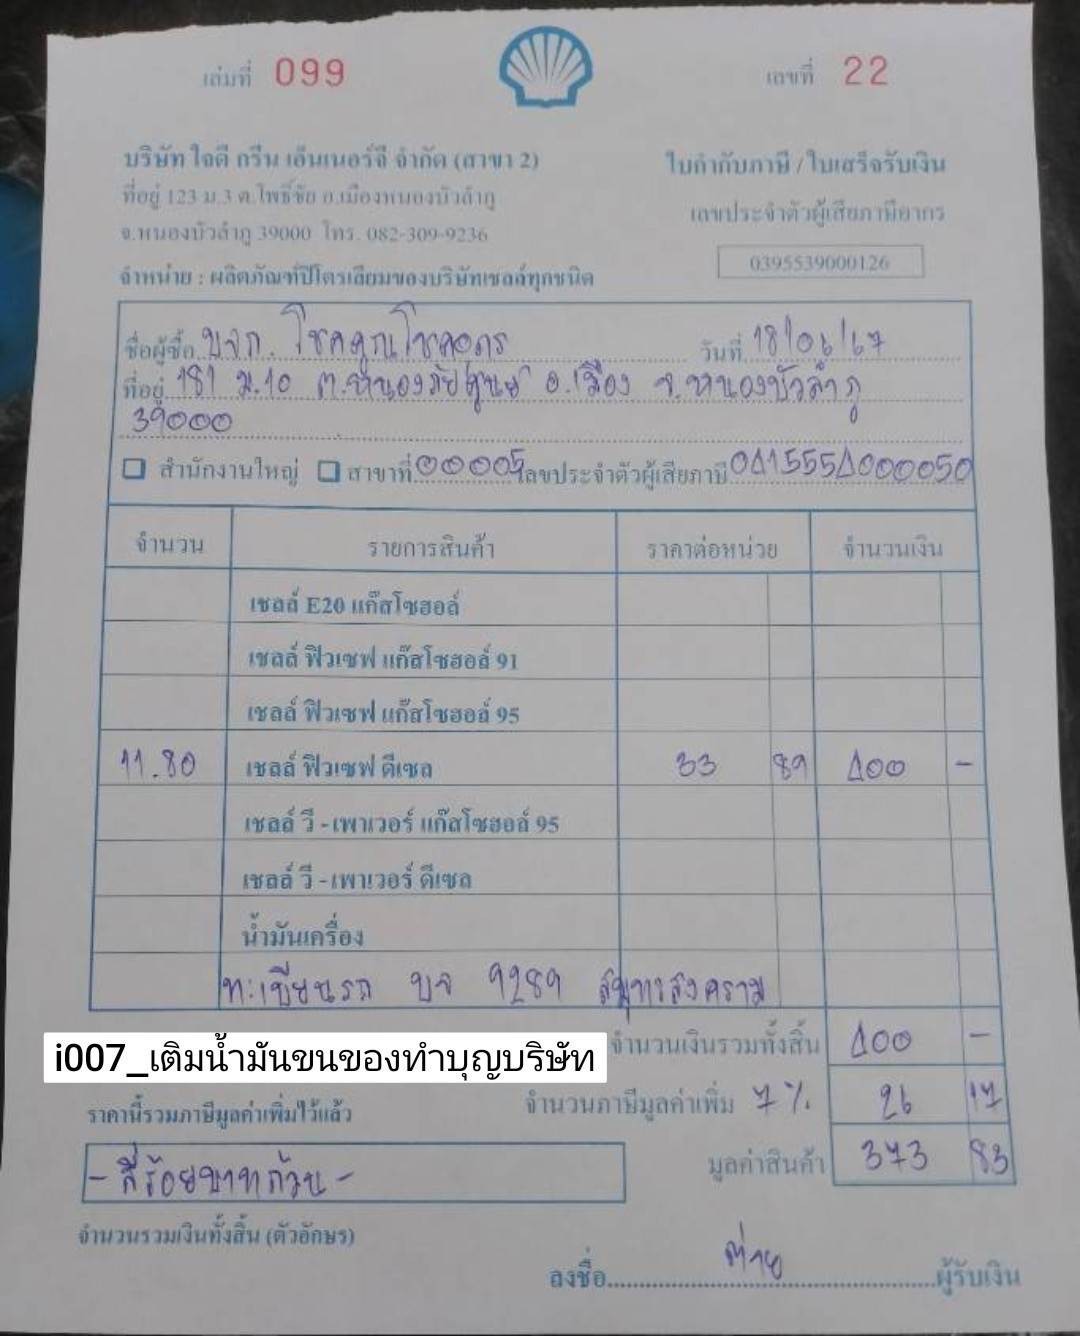 เล่มที่ 099
เลขที่ 22
บริษัท ใจดี กรีน เอ็นเนอร์จี จำกัด (สาขา 2)
ใบกำกับภาษี / ใบเสร็จรับเงิน
ที่อยู่ 123 ม.3 ต.โพธิ์ชัย อ.เมืองหนองบัวลำภู
เลขประจำตัวผู้เสียภาษีอากร
จ.หนองบัวลำภู 39000 โทร. 082-309-9236
0395539000126
จำหน่าย : ผลิตภัณฑ์ปิโตรเลียมของบริษัทเชลล์ทุกชนิด
ชื่อผู้ซื้อ บจก. โชคคูณโชคอุดร วันที่ 18/06/67
ที่อยู่ 181 ม.10 ต.หนองภัยศูนย์ อ.เมือง จ.หนองบัวลำภู
39000
สำนักงานใหญ่ สาขาที่ 00005 เลขประจำตัวผู้เสียภาษี 0415554000050
จำนวน รายการสินค้า ราคาต่อหน่วย จำนวนเงิน
เชลล์ E20 แก๊สโซฮอล์
เชลล์ ฟิวเซฟ แก๊สโซฮอล์ 91
เชลล์ ฟิวเซฟ แก๊สโซฮอล์ 95
11.80 เชลล์ ฟิวเซฟ ดีเซล 33 89 400 -
เชลล์ วี - เพาเวอร์ แก๊สโซฮอล์ 95
เชลล์ วี - เพาเวอร์ ดีเซล
น้ำมันเครื่อง
ทะเบียนรถ บจ 9289 สมุทรสงคราม
i007_เติมน้ำมันขนของทำบุญบริษัท
จำนวนเงินรวมทั้งสิ้น 400 -
ราคานี้รวมภาษีมูลค่าเพิ่มไว้แล้ว
จำนวนภาษีมูลค่าเพิ่ม 7 % 26 17
มูลค่าสินค้า 373 83
- สี่ร้อยบาทถ้วน -
จำนวนรวมเงินทั้งสิ้น (ตัวอักษร)
ลงชื่อ ต่าย ผู้รับเงิน